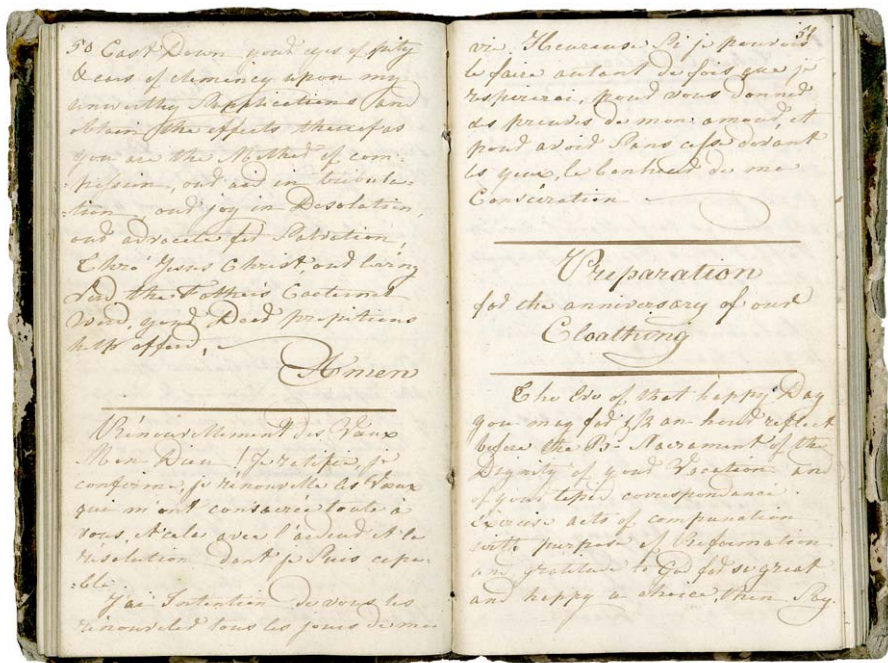 50 Cast Down your eyes of pity
& ears of clemency upon my
unworthy Supplications and
obtain the effects thereof as
you are the Mother of com:
:passion, our aid in tribula:
:tion, our joy in Desolation,
our advocate for Salvation,
Thro' Jesus Christ, our loving
the Father's
Word, your Dear propitious
help afford,
Amen
Rénouvellement des Vœux
Mon Dieu ! Je ratifie, je
confirme, je rénouvelle les Vœux
qui m'ont consacrée toute à
vous, et cela avec l'ardeur et la
résolution dont je Suis capa:
:ble.
J'ai Intention de vous les
rénouveler tous les jours de ma
51
vie. Heureuse Si je pouvois
le faire autant de fois que je
respirerai, pour vous donner
des preuves de mon amour, et
pour avoir Sans cesse devant
les yeux, le bonheur de ma
Consécration
Preparation
for the anniversary of our
Cloathing
The Eve of that happy Day
you may for 1/2 an hour reflect
before the Bd. Sacrament of the
Dignity of your Vocation and
of your tepid correspondance.
Exercise acts of compunction
with purpose of Reformation
and gratitude to God for so great
and happy a choice then Say.